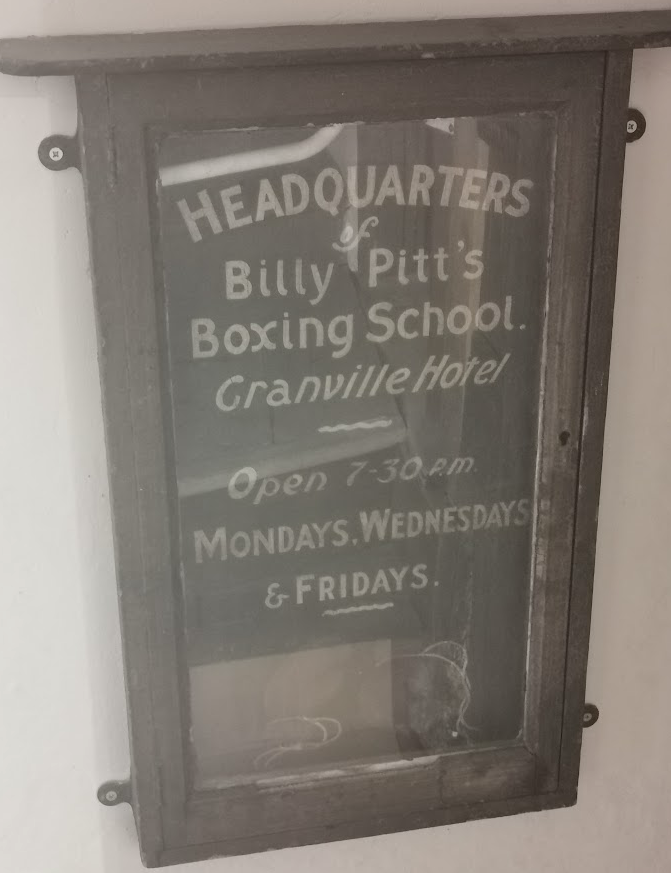 HEADQUARTERS
of
Billy Pitt's
Boxing School.
Granville Hotel
Open 7-30 P.M.
MONDAYS, WEDNESDAYS
& FRIDAYS.